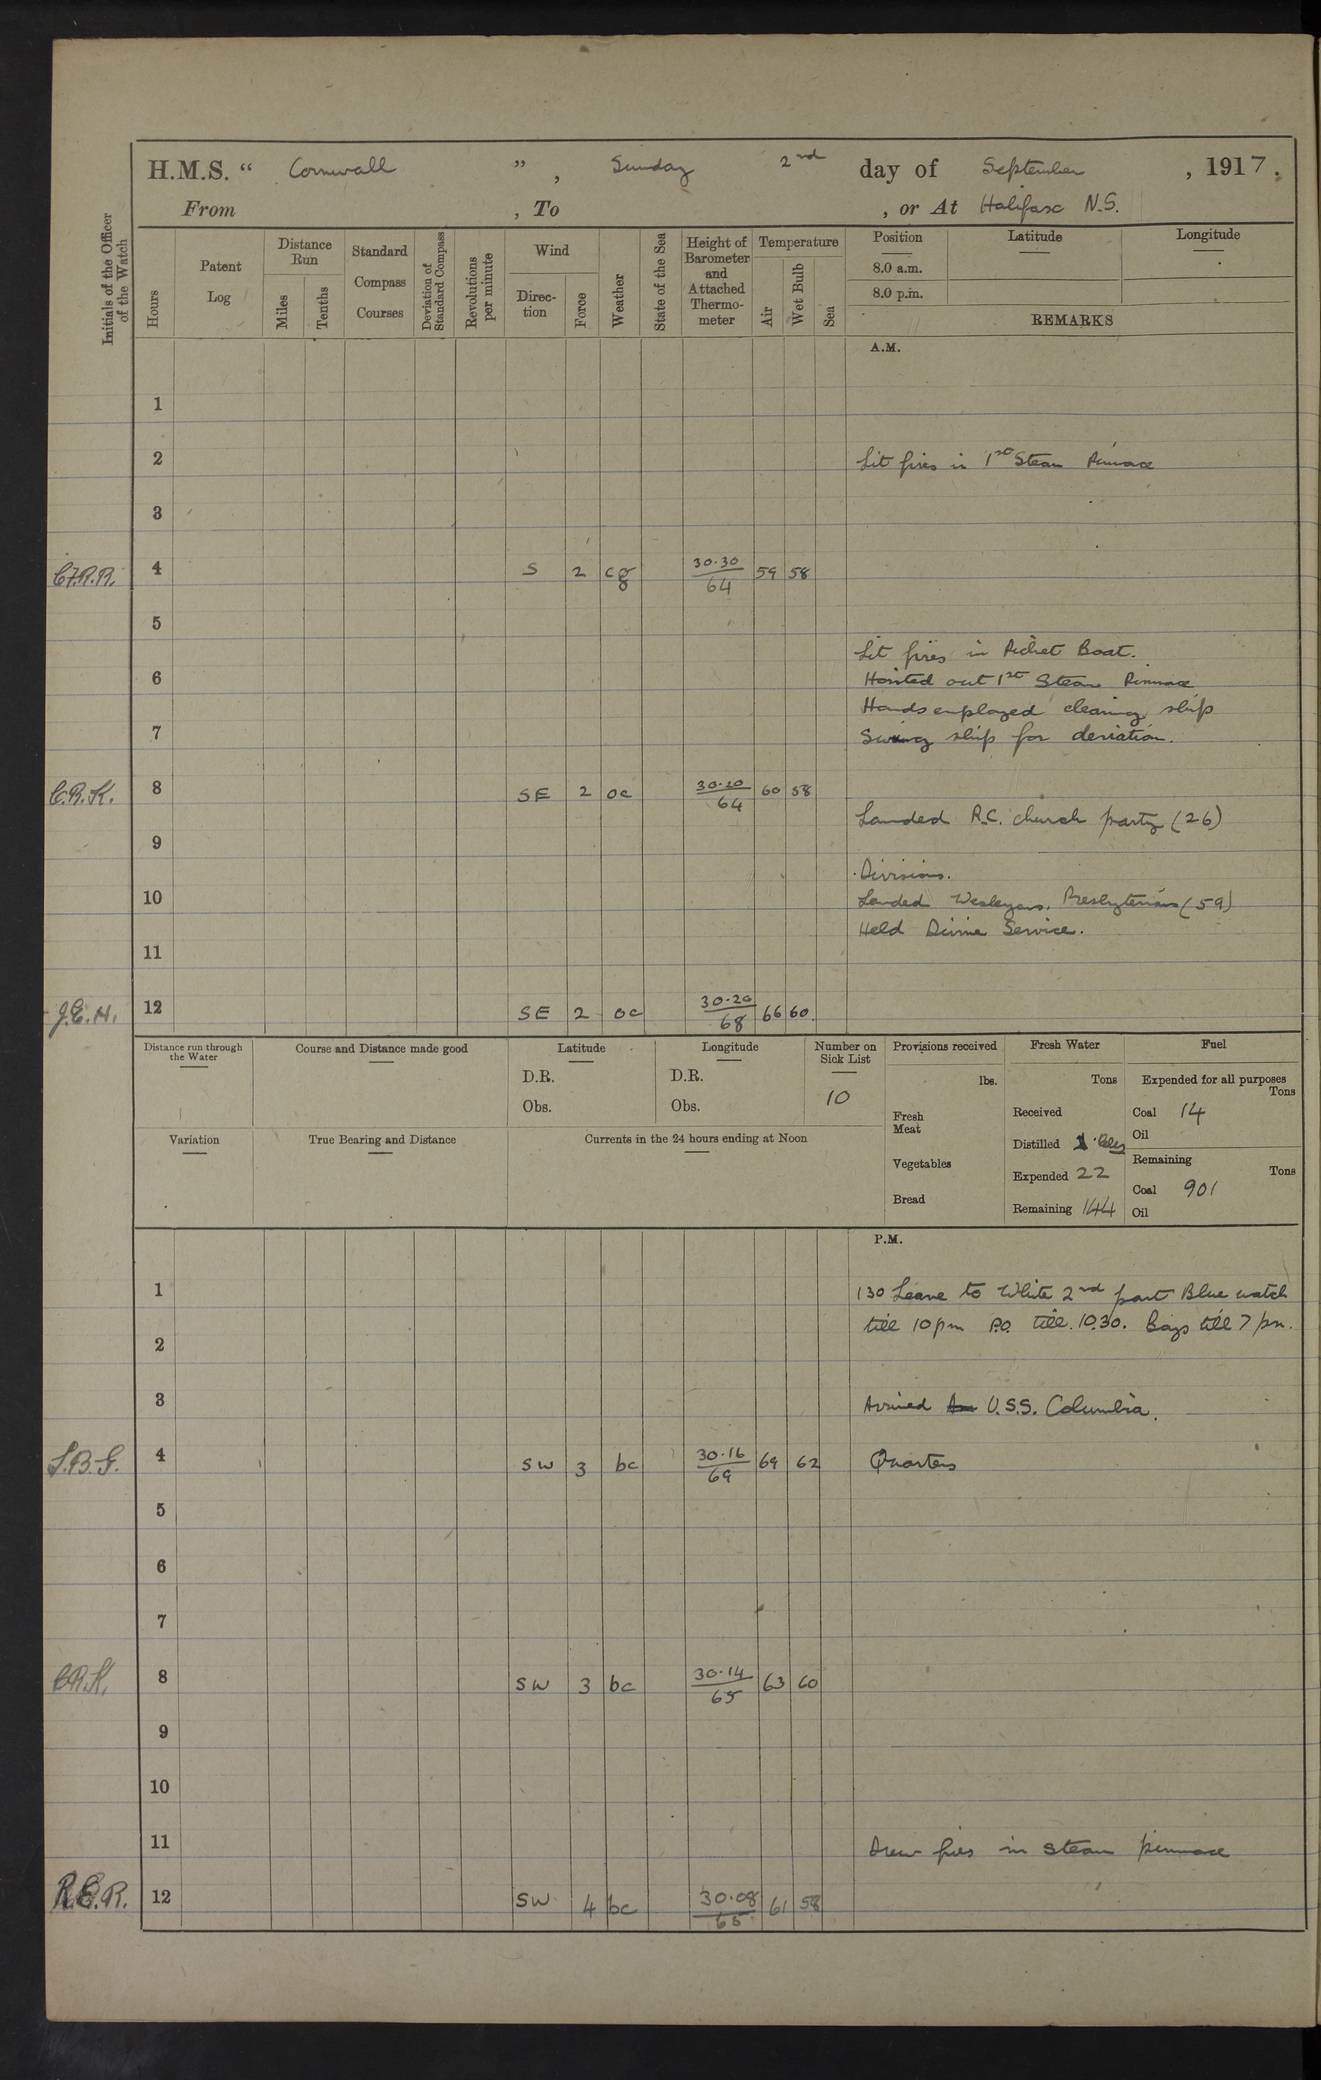 H.M.S. " Cornwall " , Sunday 2nd day of September , 1917.
From , To , or At Halifax N.S.
Initials of the Officer of the Watch
Hours
Patent Log
Distance Run
Miles
Tenths
Standard Compass Courses
Deviation of Standard Compass
Revolutions per minute
Wind
Direc-tion
Force
Weather
State of the Sea
Height of Barometer and Attached Thermo-meter
Temperature
Air
Wet Bulb
Sea
Position Latitude Longitude
8.0 a.m.
8.0 p.m.
REMARKS
A.M.
1
2 Lit fires in 1st Steam Pinnace
3
C.F.R.R. 4 S 2 cg 30.30/64 59 58
5
Lit fires in Picket Boat.
6 Hoisted out 1st Steam Pinnace
Hands employed cleaning ship
7 Swing ship for deviation.
C.R.K. 8 SE 2 oc 30.20/64 60 58
Landed R.C. church party (26)
9
Divisions.
10 Landed Wesleyans. Presbyterians (59)
Held Divine Service.
11
J.E.H. 12 SE 2 oc 30.20/68 66 60.
Distance run through the Water
Course and Distance made good
Latitude
D.R.
Obs.
Longitude
D.R.
Obs.
Number on Sick List
10
Provisions received
lbs.
Fresh Meat
Vegetables
Bread
Fresh Water
Tons
Received
Distilled
Expended 22
Remaining 144
Fuel
Expended for all purposes
Tons
Coal 14
Oil
Remaining
Tons
Coal 901
Oil
Variation
True Bearing and Distance
Currents in the 24 hours ending at Noon
P.M.
1 130 Leave to White 2nd part Blue watch
till 10pm P.O. till 10.30. Boys till 7 pm.
2
3 Arrived U.S.S. Columbia.
S.B.G. 4 SW 3 bc 30.16/69 69 62 Quarters
5
6
7
C.R.K. 8 SW 3 bc 30.14/65 63 60
9
10
11 Drew fires in steam pinnace
R.E.R. 12 SW 4 bc 30.08/65 61 58